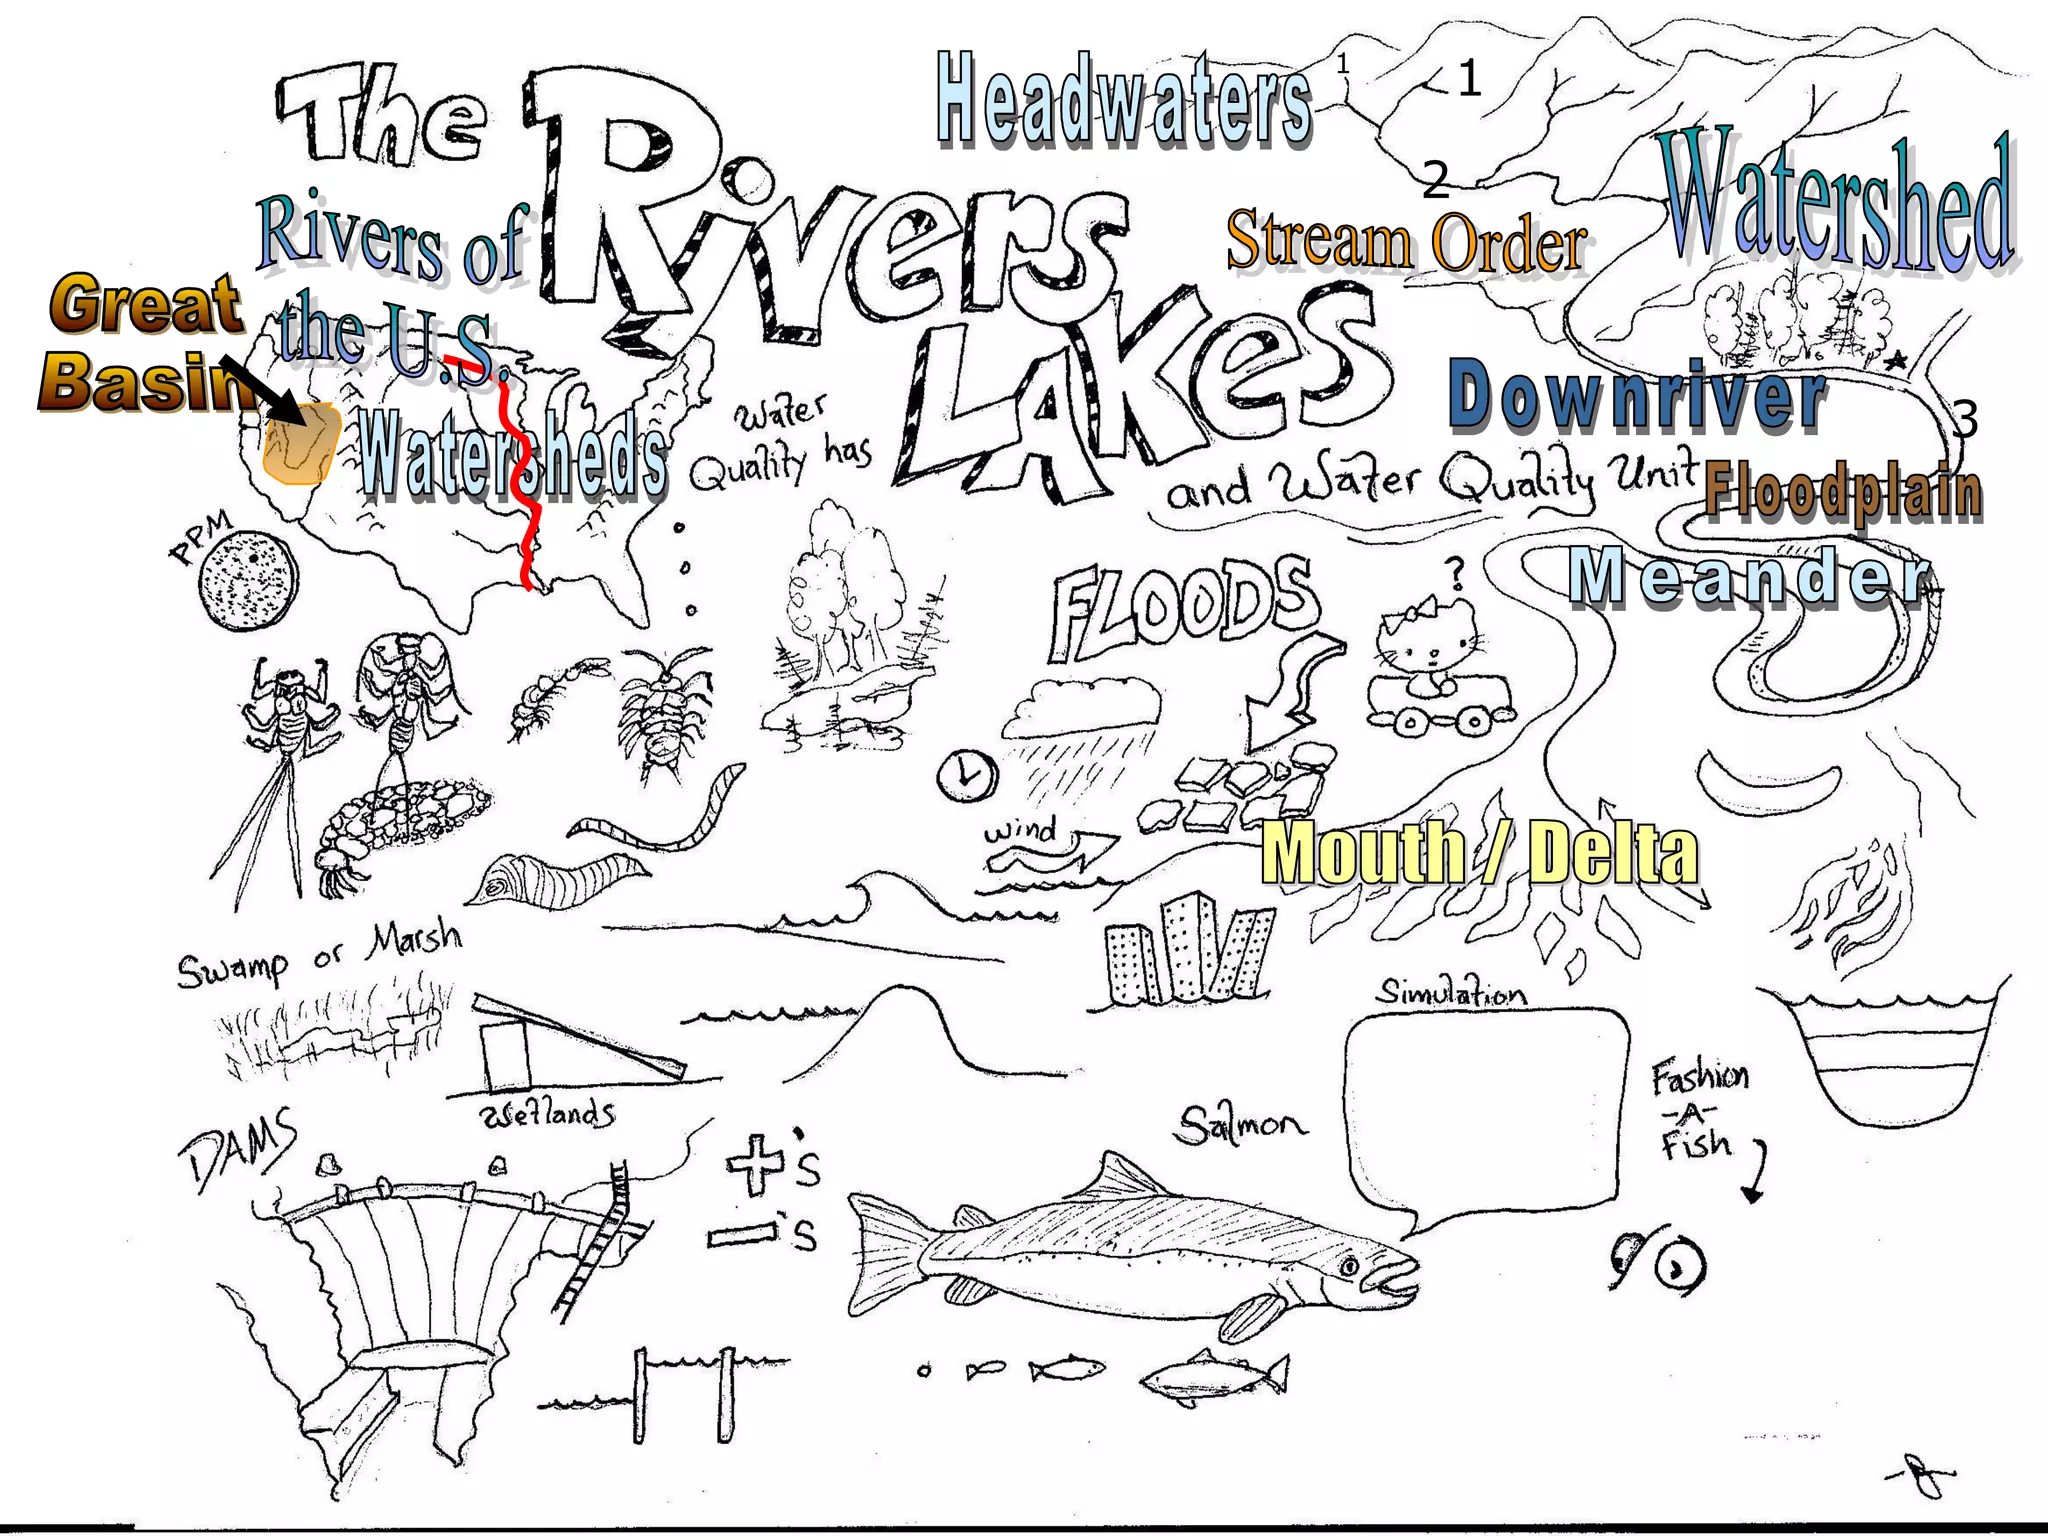 The
Rivers
Lakes
and Water Quality Unit
Headwaters
1
1
2
Stream Order
Watershed
Rivers of
the U.S.
Great
Basin
Watersheds
Downriver
3
Floodplain
Meander
Water
Quality has
PPM
FLOODS
?
wind
Mouth / Delta
Swamp or Marsh
Wetlands
Simulation
Fashion
-A-
Fish
Salmon
DAMS
+'s
-'s